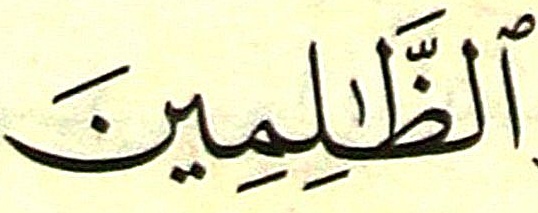 ٱلظَّٰلِمِينَ